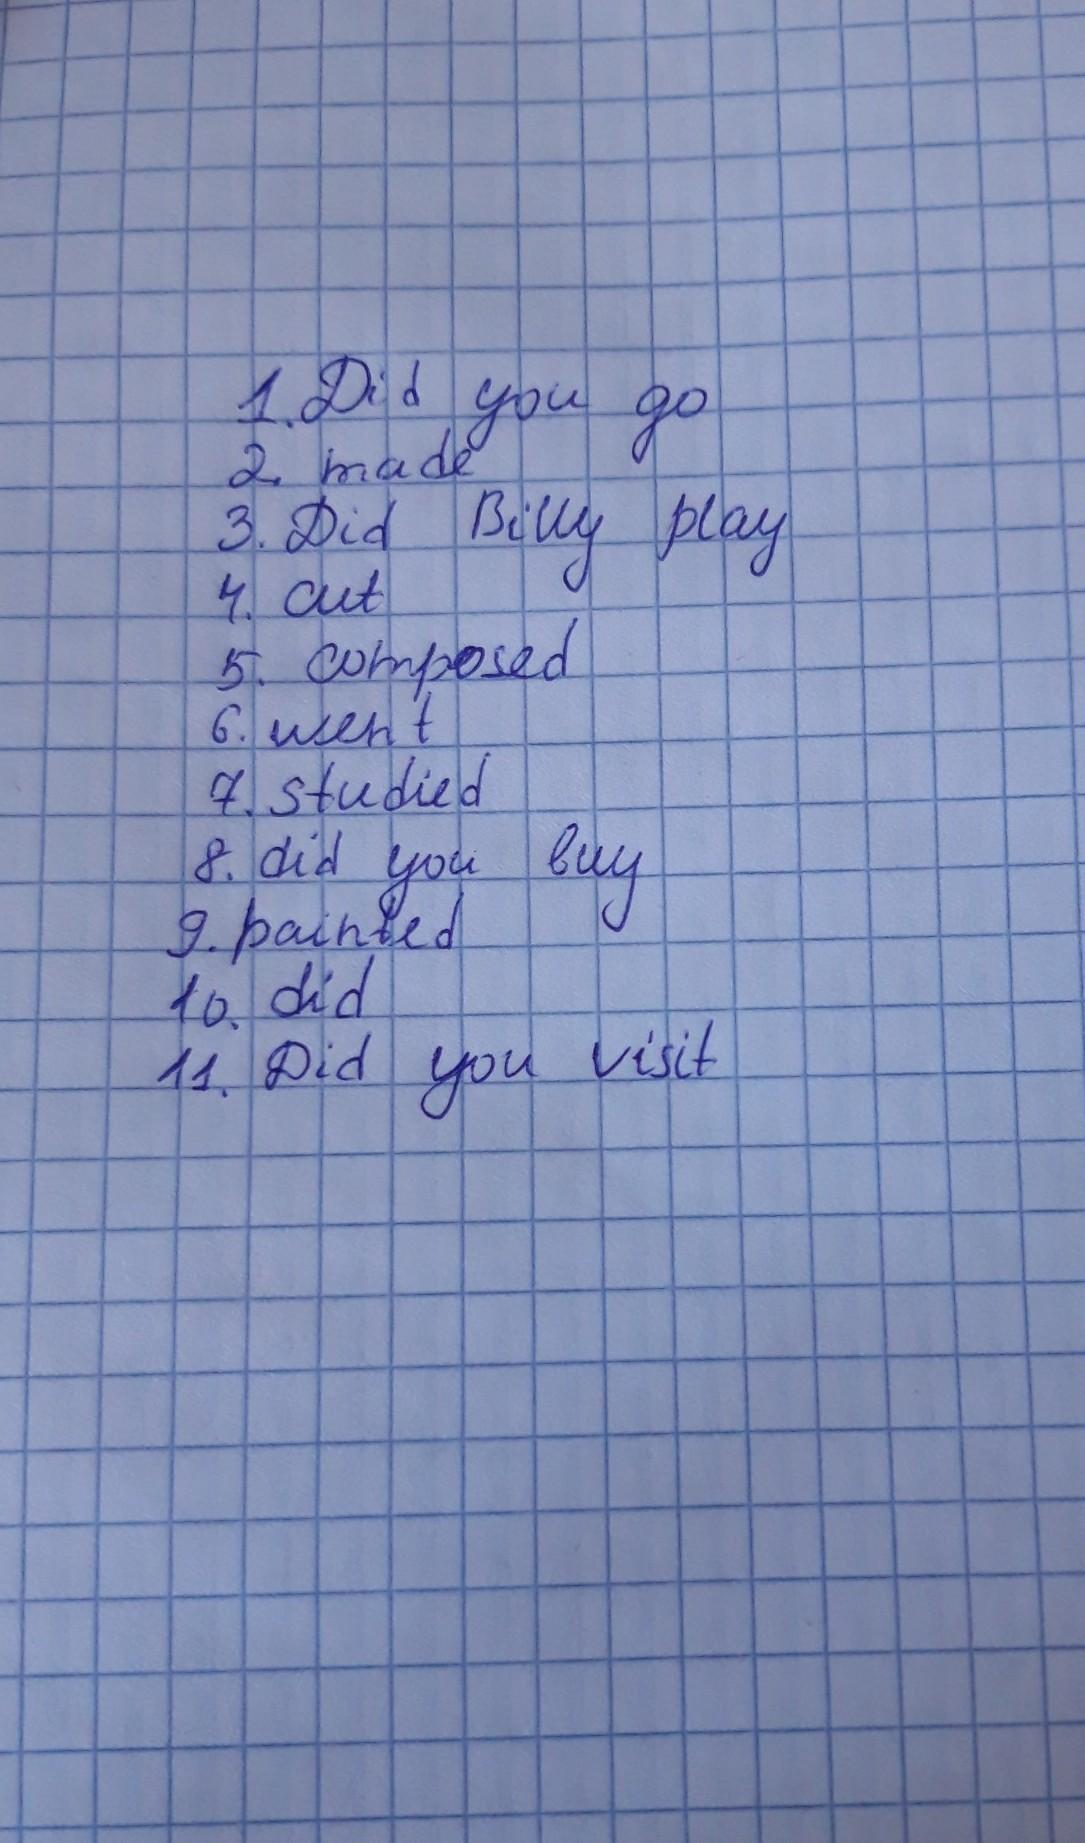 1. Did you go
2. made
3. Did Billy play
4. cut
5. composed
6. went
7. studied
8. did you buy
9. painted
10. did
11. Did you visit